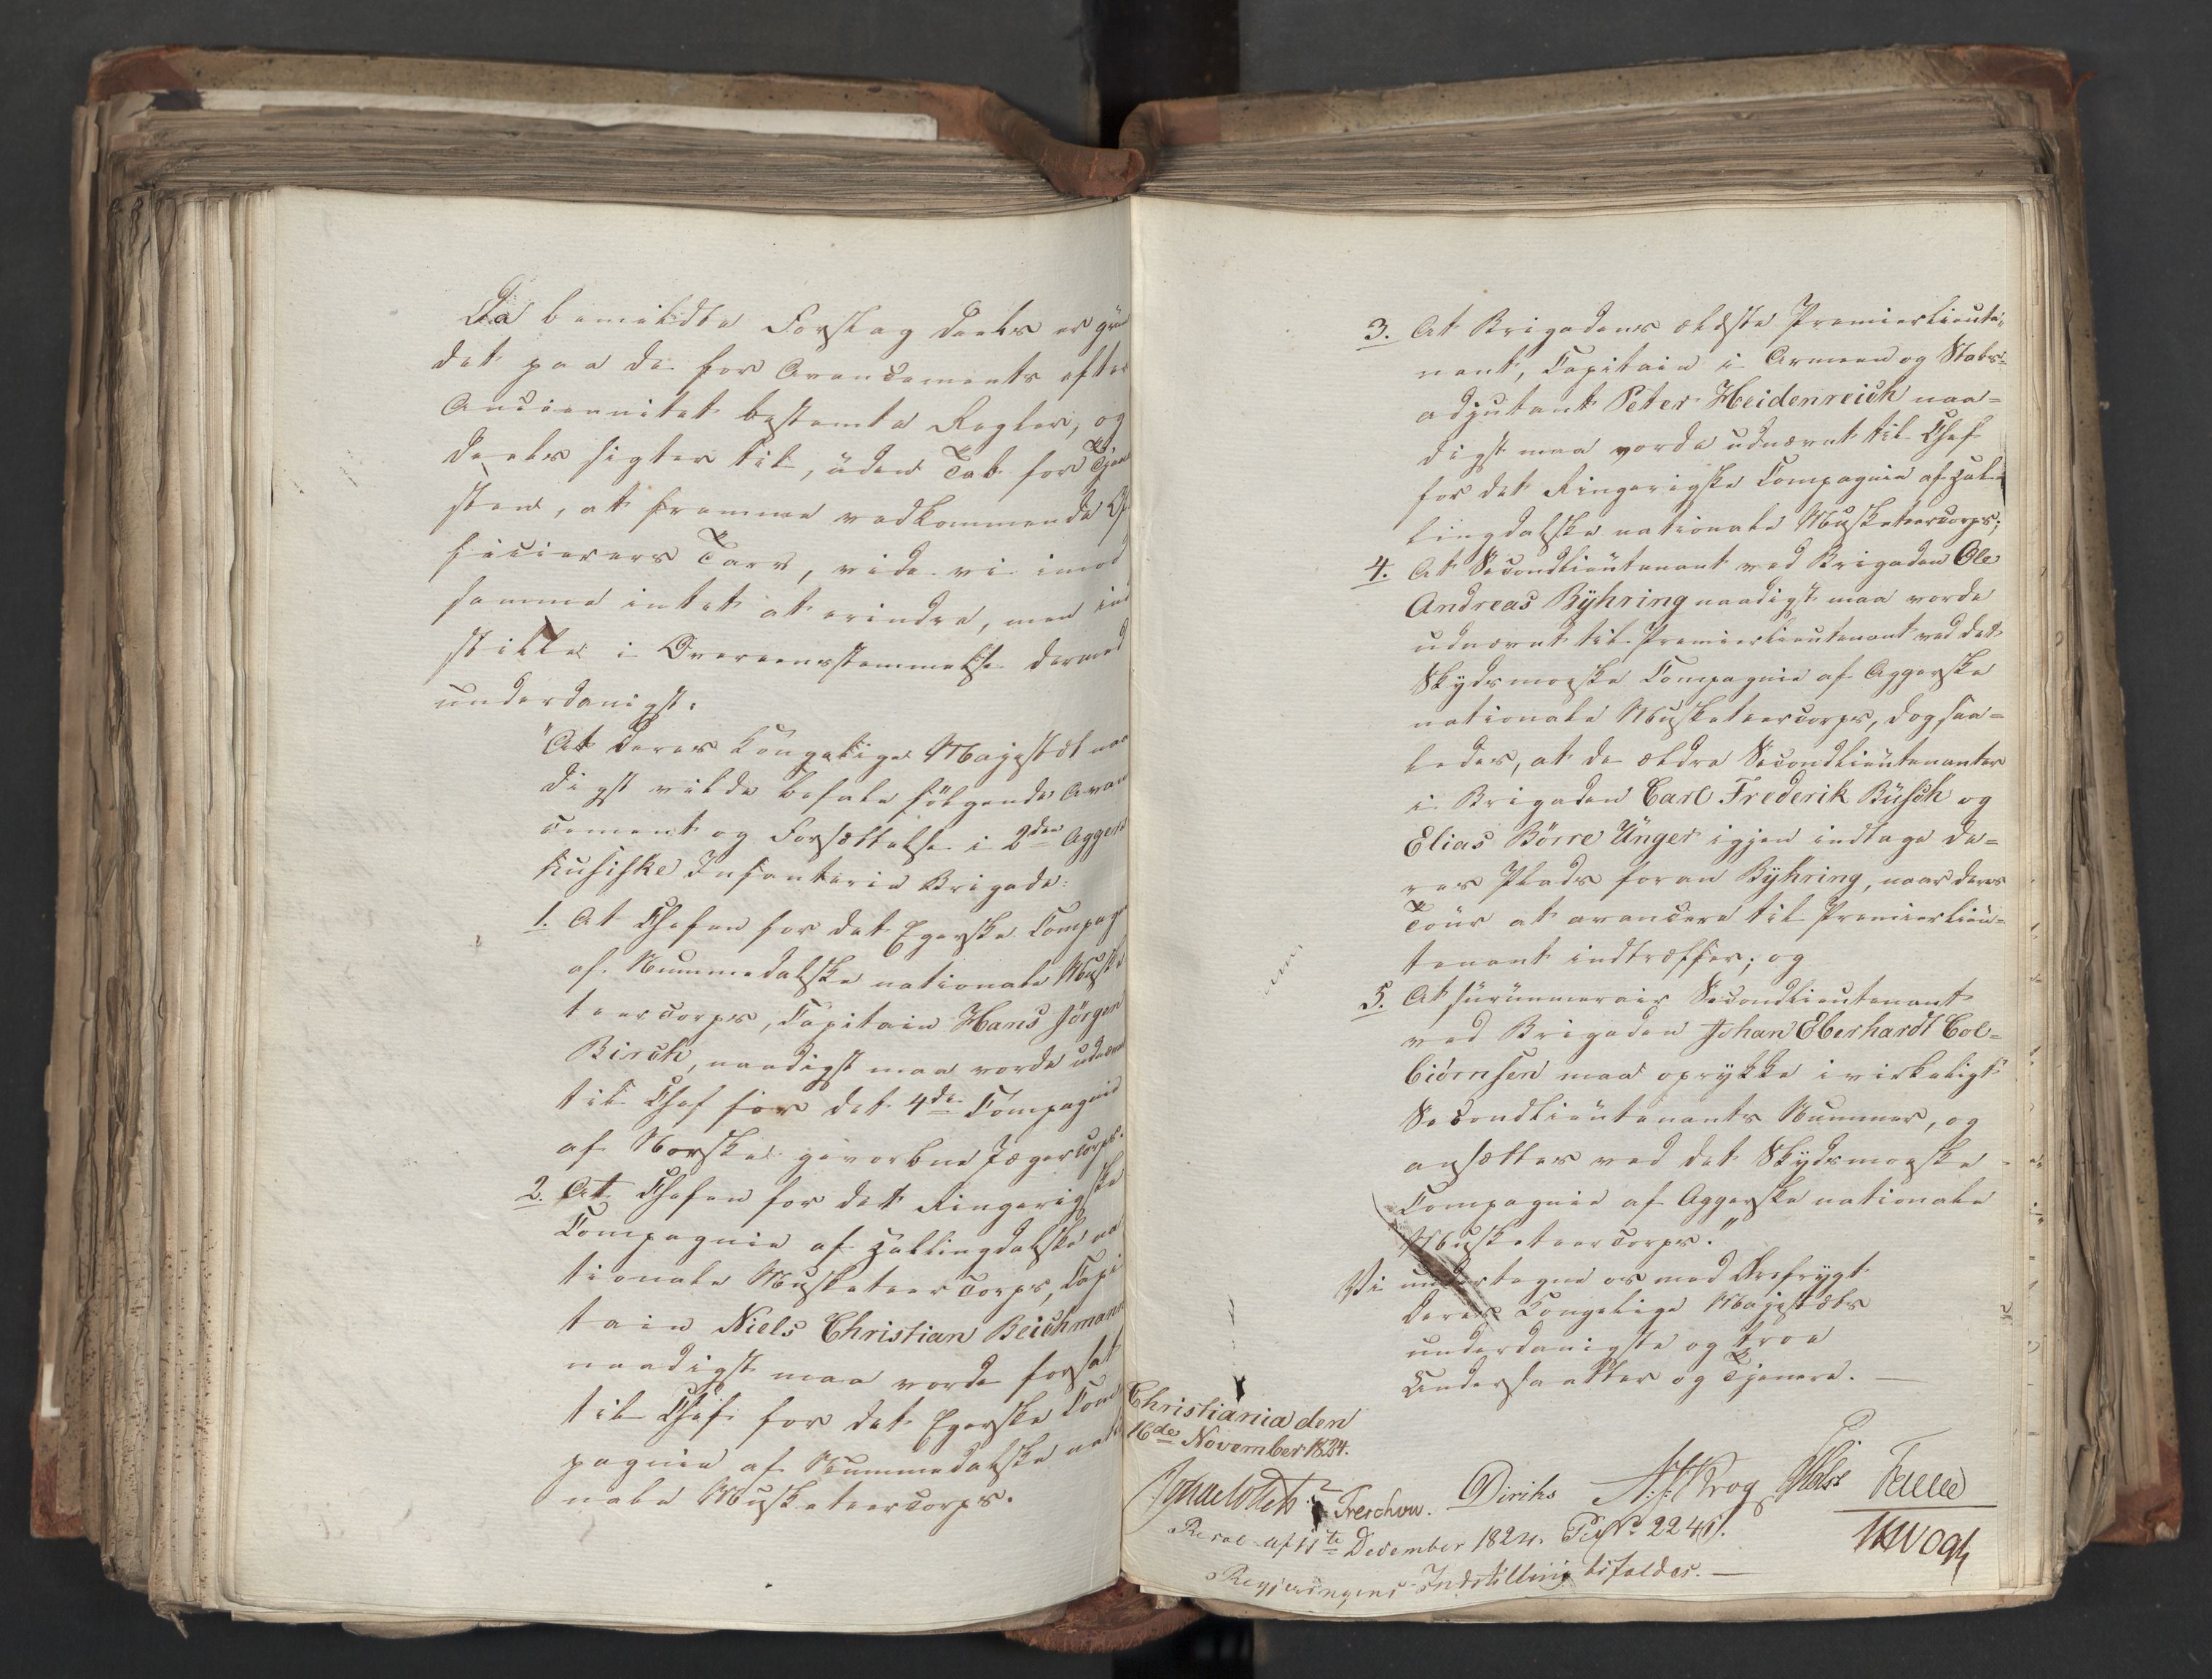 Da bemeldte Forslag deels er grun
det paa de for Avancements efter
Anciennitet bestemte Regler, og
deels sigter til, uden Tab for Tjene
sten, at fremme vedkommende Of
ficierers Tarv, vide vi imod
samme intet at erindre, men ind
stille i Overeensstemmelse dermed
underdanigst:
"At Deres Kongelige Majestæt naa
digst vilde befale følgende Avan
cement og Forsættelse i 2den Agger
huusiske Infanterie Brigade:
1. At Chefen for det Egerske Compagn
af Nummedalske nationale Muske
teercorps, Capitain Hans Jørgen
Birch, naadigst maa vorde udnævnt
til Chef for det 4de Compagnie
af Norske gevorbne Jægercorps.
2. At Chefen for det Ringerigske
Compagnie af Hallingdalske na
tionale Musketeercorps, Capi
tain Niels Christian Beichmann
naadigst maa vorde forsat
til Chef for det Egerske Com
pagnie af Nummedalske natio
nale Musketeercorps.
3. At Brigadens ældste Premierlieute=
nant, Capitain i Armeen og Stabs=
adjutant Peter Heidenreich naa=
digst maa vorde udnævnt til Chef
for det Ringerigske Compagnie af Hal=
lingdalske nationale Musketeercorps;
4. At Secondlieutenant ved Brigaden Ole
Andreas Bÿhring naadigst maa vorde
udnævnt til Premierlieutenant ved det
Skydsmoeske Compagnie af Aggerske
nationale Musketeercorps, dog saa=
ledes, at de ældre Secondlieutenanter
i Brigaden Carl Frederik Büsch og
Elias Börre Unger igjen indtage de=
res Plads foran Bÿhring, naar deres
Tour at avancere til Premierlieu=
tenant indtræffer; og
5. At surnumerair Secondlieutenant
ved Brigaden Johan Eberhardt Col=
biörnsen maa oprykke i virkeligt
Secondlieutenants Nummer, og
ansættes ved det Skydsmoeske
Compagnie af Aggerske nationale
Musketeercorps."
Vi undertegne os med Ærefrygt
Deres Kongelige Majestæts
underdanigste og troe
Undersaatter og Tjenere.
Christiania den
16de November 1824.
Treschow. Diriks Krog Fasting
Resol af 11te December 1824. No 2241.
Regjeringens Indstilling bifaldes.
Vogt